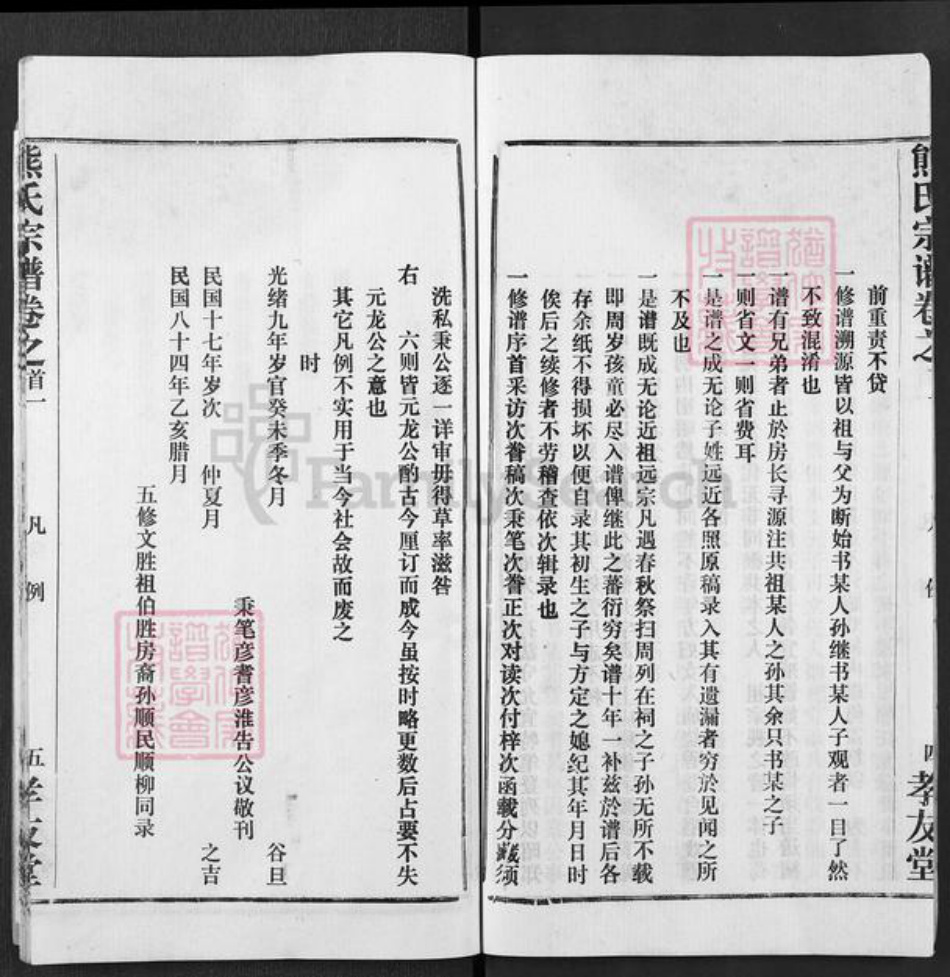 熊氏宗谱卷之
四
孝友堂
前重责不贷
一修谱溯源皆以祖与父为断始书某人孙继书某人子观者一目了然
不致混淆也
一谱有兄弟者止於房长寻源注共祖某人之孙其余只书某之子
一则省文一则省费耳
一是谱之成无论子姓远近各照原稿录入其有遗漏者穷於见闻之所
不及也
一是谱既成无论近祖远宗凡遇春秋祭扫周列在祠之子孙无所不载
即周岁孩童必尽入谱俾继此之蕃衍穷矣谱十年一补兹於谱后各
存余纸不得损坏以便自录其初生之子与方定之媳纪其年月日时
俟后之续修者不劳稽查依次辑录也
一修谱序首采访次誊稿次秉笔次誊正次对读次付梓次函载分藏须
洗私秉公逐一详审毋得草率滋咎
右 六则皆元龙公酌古今厘订而咸今虽按时略更数后占要不失
元龙公之意也
其它凡例不实用于当今社会故而废之
时
光绪九年岁官癸未季冬月 谷旦
秉笔彦耆彦淮告公议敬刊
民国十七年岁次 仲夏月 之吉
民国八十四年乙亥腊月
五修文胜祖伯胜房裔孙顺民顺柳同录
熊氏宗谱卷之首一
凡例
五
孝友堂
FamilySearch